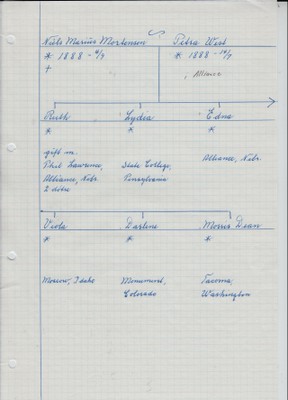 Niels Marius Mortensen Petra West
* 1888 - 4/7 * 1888 - 14/7
+ i Alliance
Ruth Lydia Edna
* * *
gift m.
Phil Lawrence, State College, Alliance, Nebr.
Alliance, Nebr. Pensylvania
2 døtre
Viola Darline Morris Dean
* * *
Moscow, Idaho Monument, Tacoma,
Colorado Washington